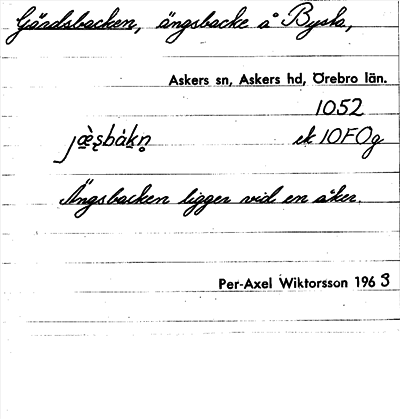 Gärdsbacken, ängsbacke å Byska,
Askers sn, Askers hd, Örebro län.
1052
jæ̀ṣbák̥n̥ ek 10F0g
Ängsbacken ligger vid en åker.
Per-Axel Wiktorsson 1963